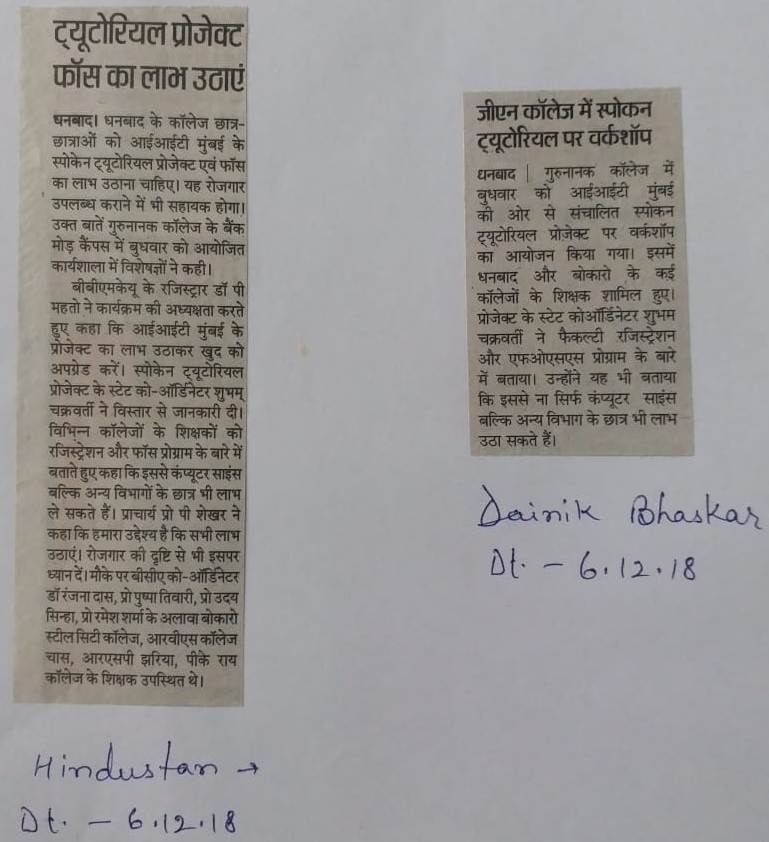 ट्यूटोरियल प्रोजेक्ट
फॉस का लाभ उठाएं
धनबाद। धनबाद के कॉलेज छात्र-
छात्राओं को आईआईटी मुंबई के
स्पोकेन ट्यूटोरियल प्रोजेक्ट एवं फॉस
का लाभ उठाना चाहिए। यह रोजगार
उपलब्ध कराने में भी सहायक होगा।
उक्त बातें गुरुनानक कॉलेज के बैंक
मोड़ कैंपस में बुधवार को आयोजित
कार्यशाला में विशेषज्ञों ने कही।
बीबीएमकेयू के रजिस्ट्रार डॉ पी
महतो ने कार्यक्रम की अध्यक्षता करते
हुए कहा कि आईआईटी मुंबई के
प्रोजेक्ट का लाभ उठाकर खुद को
अपग्रेड करें। स्पोकेन ट्यूटोरियल
प्रोजेक्ट के स्टेट को-ऑर्डिनेटर शुभम्
चक्रवर्ती ने विस्तार से जानकारी दी।
विभिन्न कॉलेजों के शिक्षकों को
रजिस्ट्रेशन और फॉस प्रोग्राम के बारे में
बताते हुए कहा कि इससे कंप्यूटर साइंस
बल्कि अन्य विभागों के छात्र भी लाभ
ले सकते हैं। प्राचार्य प्रो पी शेखर ने
कहा कि हमारा उद्देश्य है कि सभी लाभ
उठाएं। रोजगार की दृष्टि से भी इसपर
ध्यान दें। मौके पर बीसीए को-ऑर्डिनेटर
डॉ रंजना दास, प्रो पुष्पा तिवारी, प्रो उदय
सिन्हा, प्रो रमेश शर्मा के अलावा बोकारो
स्टील सिटी कॉलेज, आरवीएस कॉलेज
चास, आरएसपी झरिया, पीके राय
कॉलेज के शिक्षक उपस्थित थे।
Hindustan →
Dt. - 6.12.18
जीएन कॉलेज में स्पोकन
ट्यूटोरियल पर वर्कशॉप
धनबाद | गुरुनानक कॉलेज में
बुधवार को आईआईटी मुंबई
की ओर से संचालित स्पोकन
ट्यूटोरियल प्रोजेक्ट पर वर्कशॉप
का आयोजन किया गया। इसमें
धनबाद और बोकारो के कई
कॉलेजों के शिक्षक शामिल हुए।
प्रोजेक्ट के स्टेट कोऑर्डिनेटर शुभम
चक्रवर्ती ने फैकल्टी रजिस्ट्रेशन
और एफओएसएस प्रोग्राम के बारे
में बताया। उन्होंने यह भी बताया
कि इससे ना सिर्फ कंप्यूटर साइंस
बल्कि अन्य विभाग के छात्र भी लाभ
उठा सकते हैं।
Dainik Bhaskar
Dt. - 6.12.18